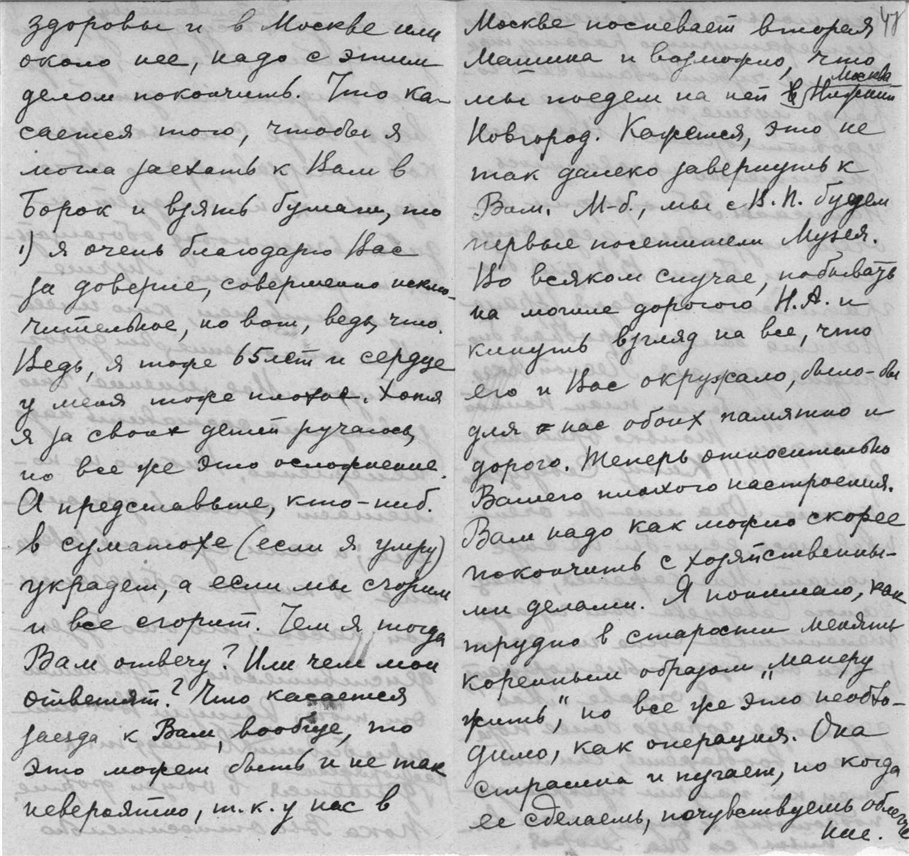 здоровы и в Москве или
около нее, надо с этим
делом покончить. Что ка-
сается того, чтобы я
могла заехать к Вам в
Борок и взять бумаги, то
1) я очень благодарю Вас
за доверие, совершенно исклю-
чительное, но вот, ведь, что.
Ведь, я тоже 65 лет и сердце
у меня тоже плохое. Хотя
я за своих детей ручаюсь,
но все же это осложнение.
А представьте, кто-ниб.
в суматохе (если я умру)
украдет, а если мы сгорим
и все сгорит. Чем я тогда
Вам отвечу? Или чем мои
ответят? Что касается
заезда к Вам, вообще, то
это может быть и не так
невероятно, т.к. у нас в
48
Москве поспевает вторая
машина и возможно, что
мы поедем на ней в Нижний
Москва
Новгород. Кажется, это не
так далеко завернуть к
Вам. М-б., мы с В.П. будем
первые посетители Музея.
Во всяком случае, побывать
на могиле дорогого Н.А. и
кинуть взгляд на все, что
его и Вас окружало, было-бы
для нас обоих памятно и
дорого. Теперь относительно
Вашего плохого настроения.
Вам надо как можно скорее
покончить с хозяйственны-
ми делами. Я понимаю, как
трудно в старости менять
коренным образом „манеру
жить“, но все же это необхо-
димо, как операция. Она
страшна и пугает, но когда
ее сделаешь, почувствуешь облегче
ние.